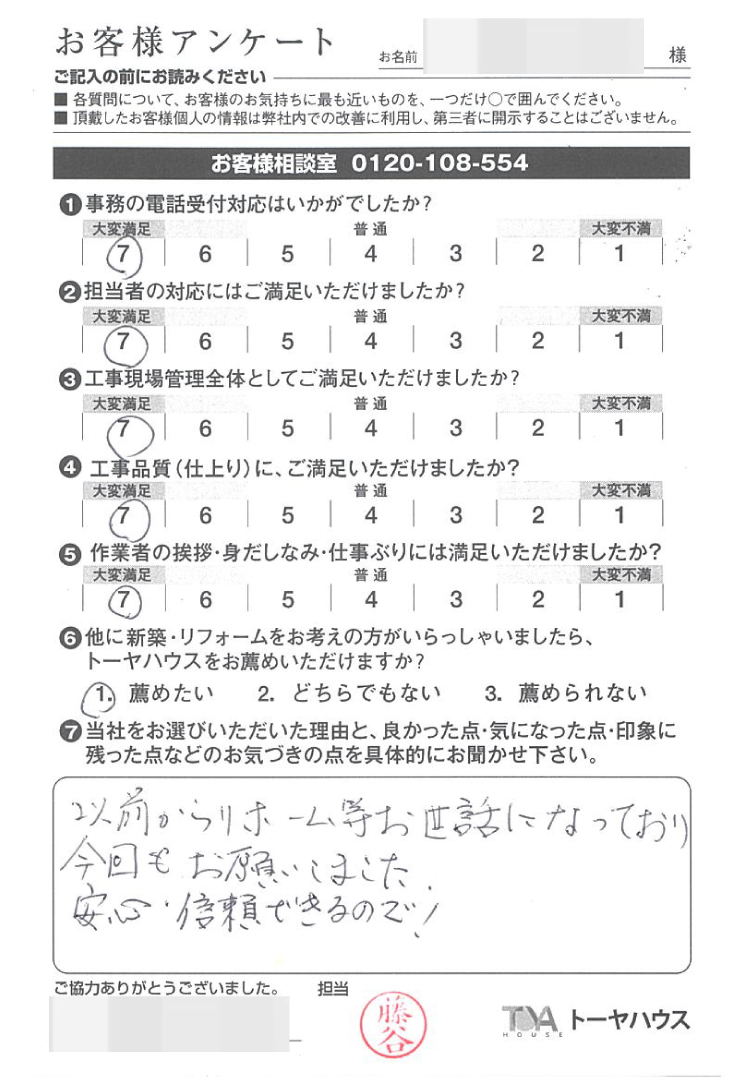 お客様アンケート
お名前 様
ご記入の前にお読みください
■ 各質問について、お客様のお気持ちに最も近いものを、一つだけ○で囲んでください。
■ 頂戴したお客様個人の情報は弊社内での改善に利用し、第三者に開示することはございません。
お客様相談室 0120-108-554
❶事務の電話受付対応はいかがでしたか?
大変満足 普通 大変不満
7 6 5 4 3 2 1
❷担当者の対応にはご満足いただけましたか?
大変満足 普通 大変不満
7 6 5 4 3 2 1
❸工事現場管理全体としてご満足いただけましたか?
大変満足 普通 大変不満
7 6 5 4 3 2 1
❹工事品質(仕上り)に、ご満足いただけましたか?
大変満足 普通 大変不満
7 6 5 4 3 2 1
❺作業者の挨拶・身だしなみ・仕事ぶりには満足いただけましたか?
大変満足 普通 大変不満
7 6 5 4 3 2 1
❻他に新築・リフォームをお考えの方がいらっしゃいましたら、
トーヤハウスをお薦めいただけますか?
1. 薦めたい 2. どちらでもない 3. 薦められない
❼当社をお選びいただいた理由と、良かった点・気になった点・印象に
残った点などのお気づきの点を具体的にお聞かせ下さい。
以前からリホーム等お世話になっており
今回もお願いしました。
安心・信頼できるので!
ご協力ありがとうございました。 担当
藤谷
TOYA HOUSE トーヤハウス